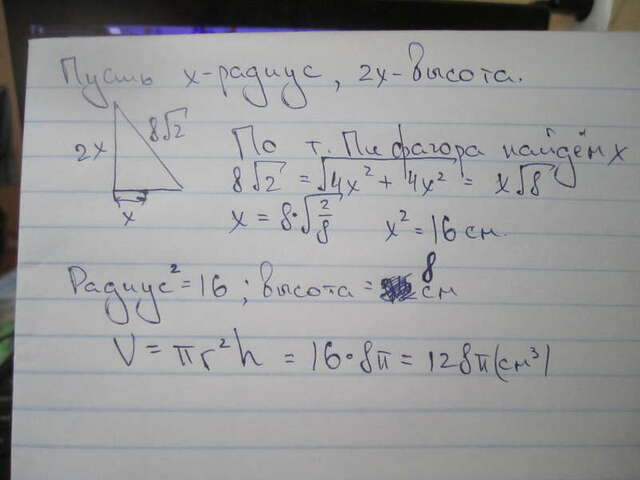 Пусть x-радиус, 2x-высота.
2x
8√2
x
По т. Пифагора найдём x
8√2 = √4x² + 4x² = x√8
x = 8·√2/8 x² = 16 см.
Радиус² = 16 ; высота = 8 см
V = πr²h = 16·8π = 128π(см³)